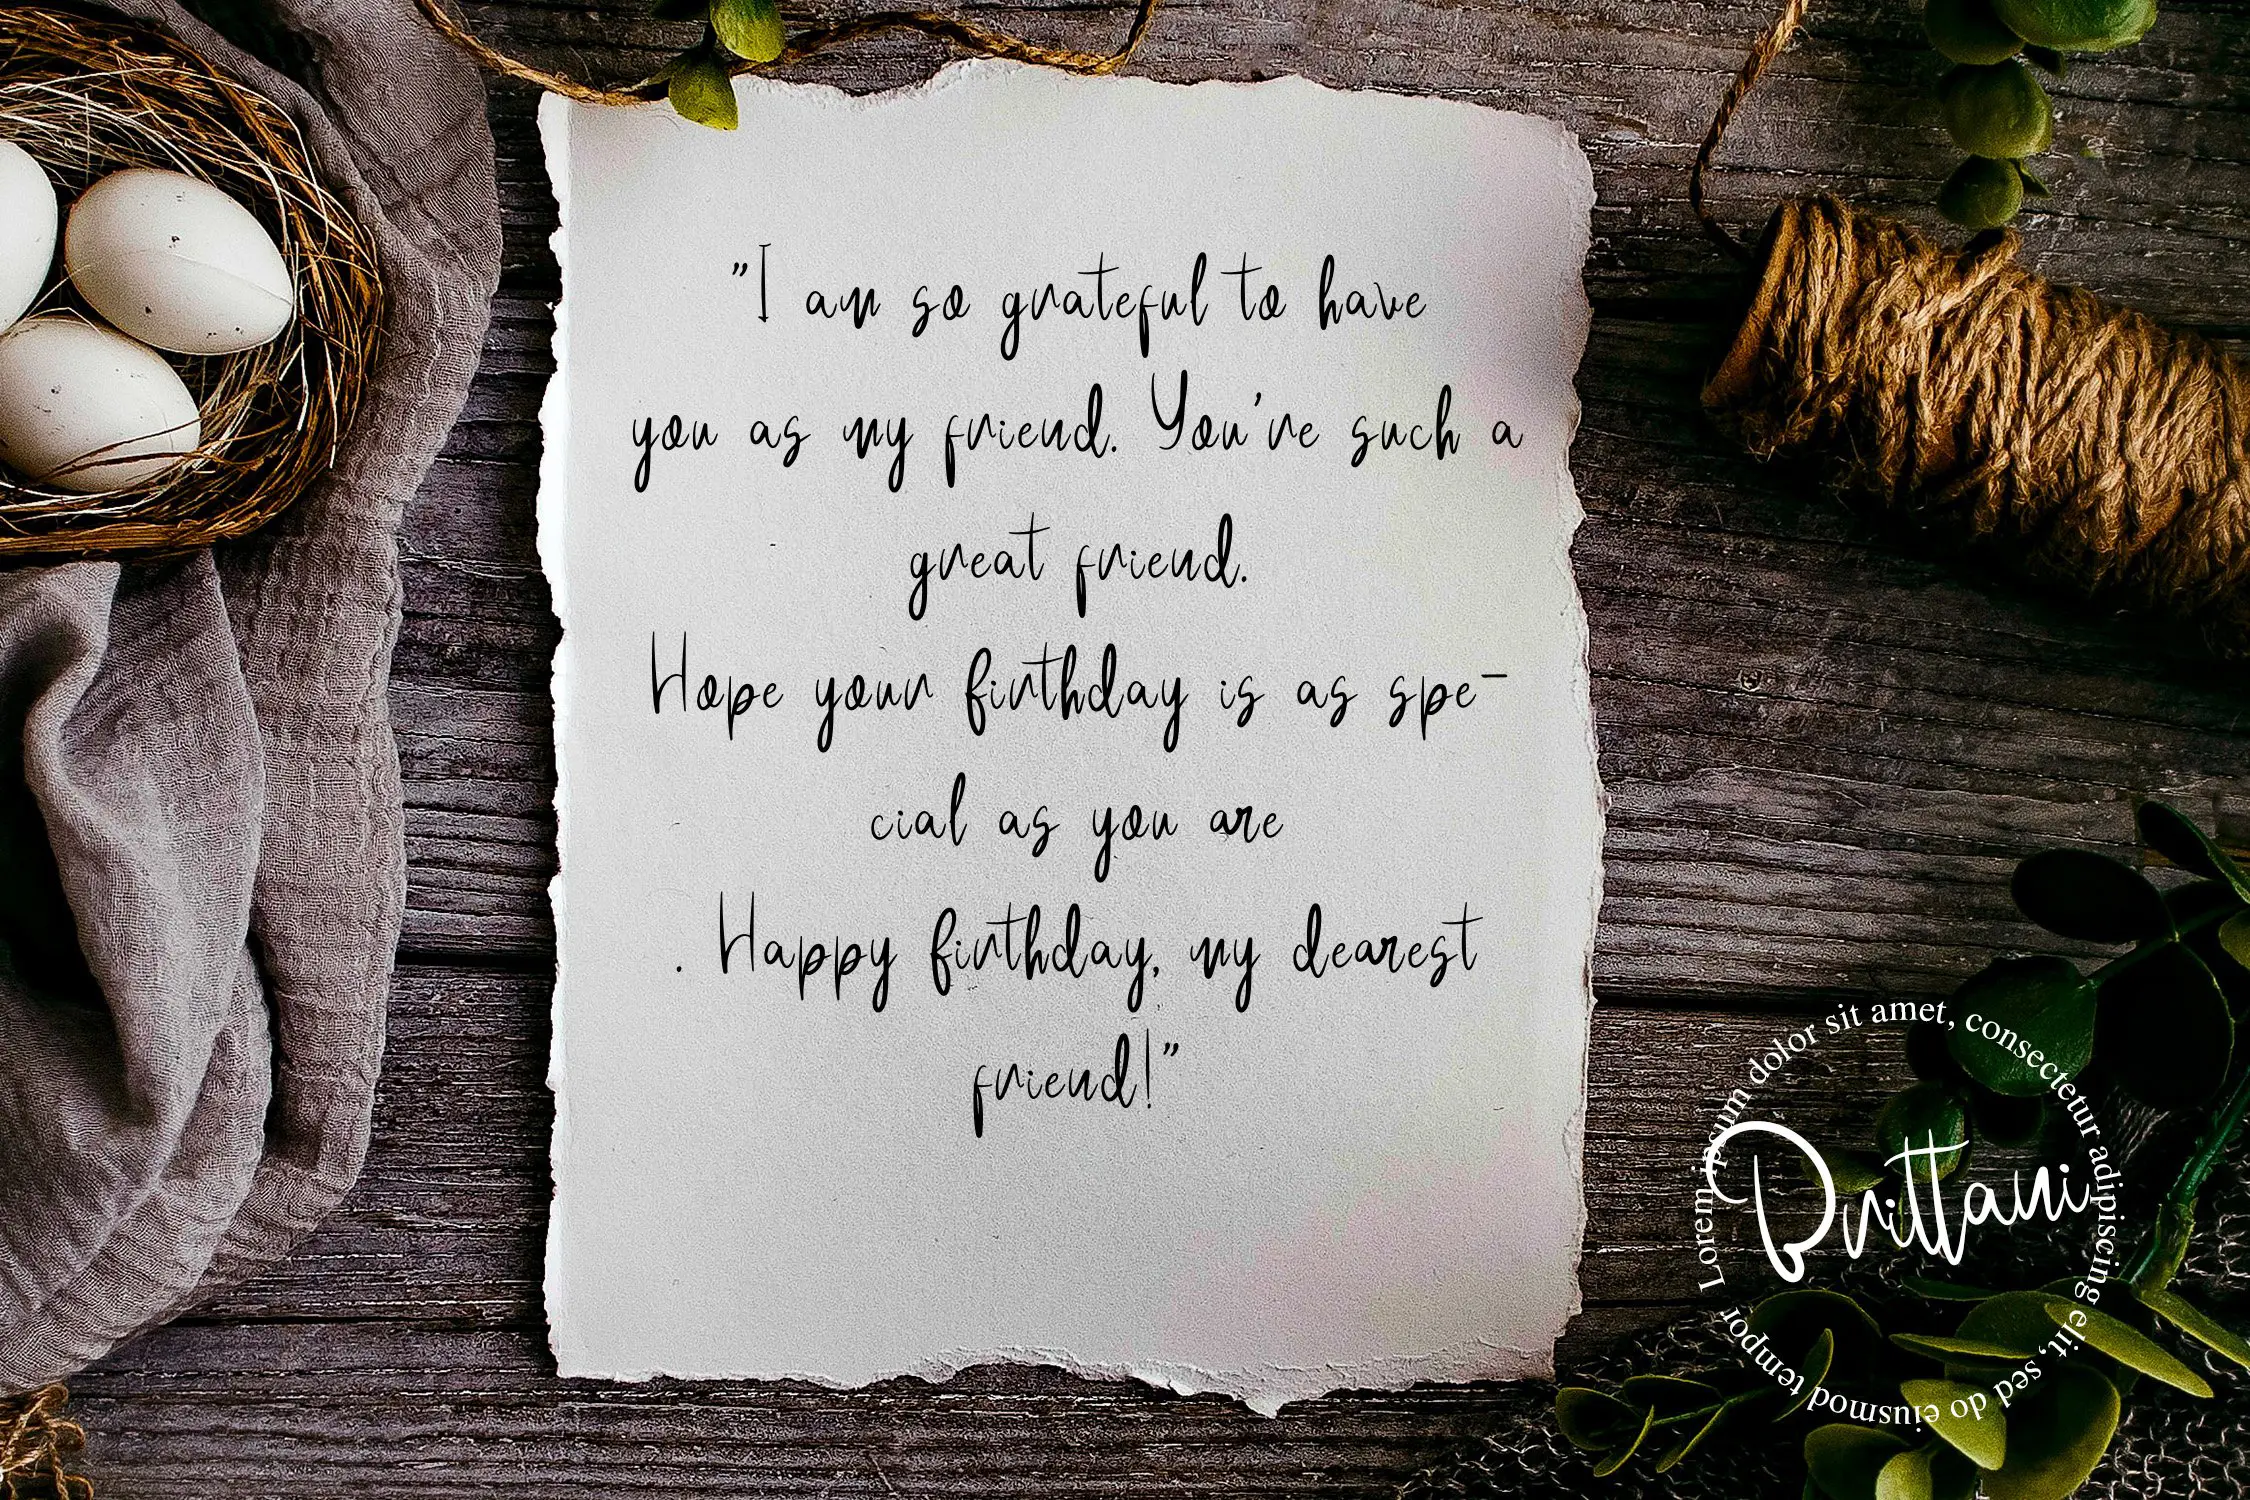 "I am so grateful to have
you as my friend. You're such a
great friend.
Hope your birthday is as spe-
cial as you are
. Happy birthday, my dearest
friend!"
Lorem ipsum dolor sit amet, consectetur adipiscing elit, sed do eiusmod tempor
Brittani